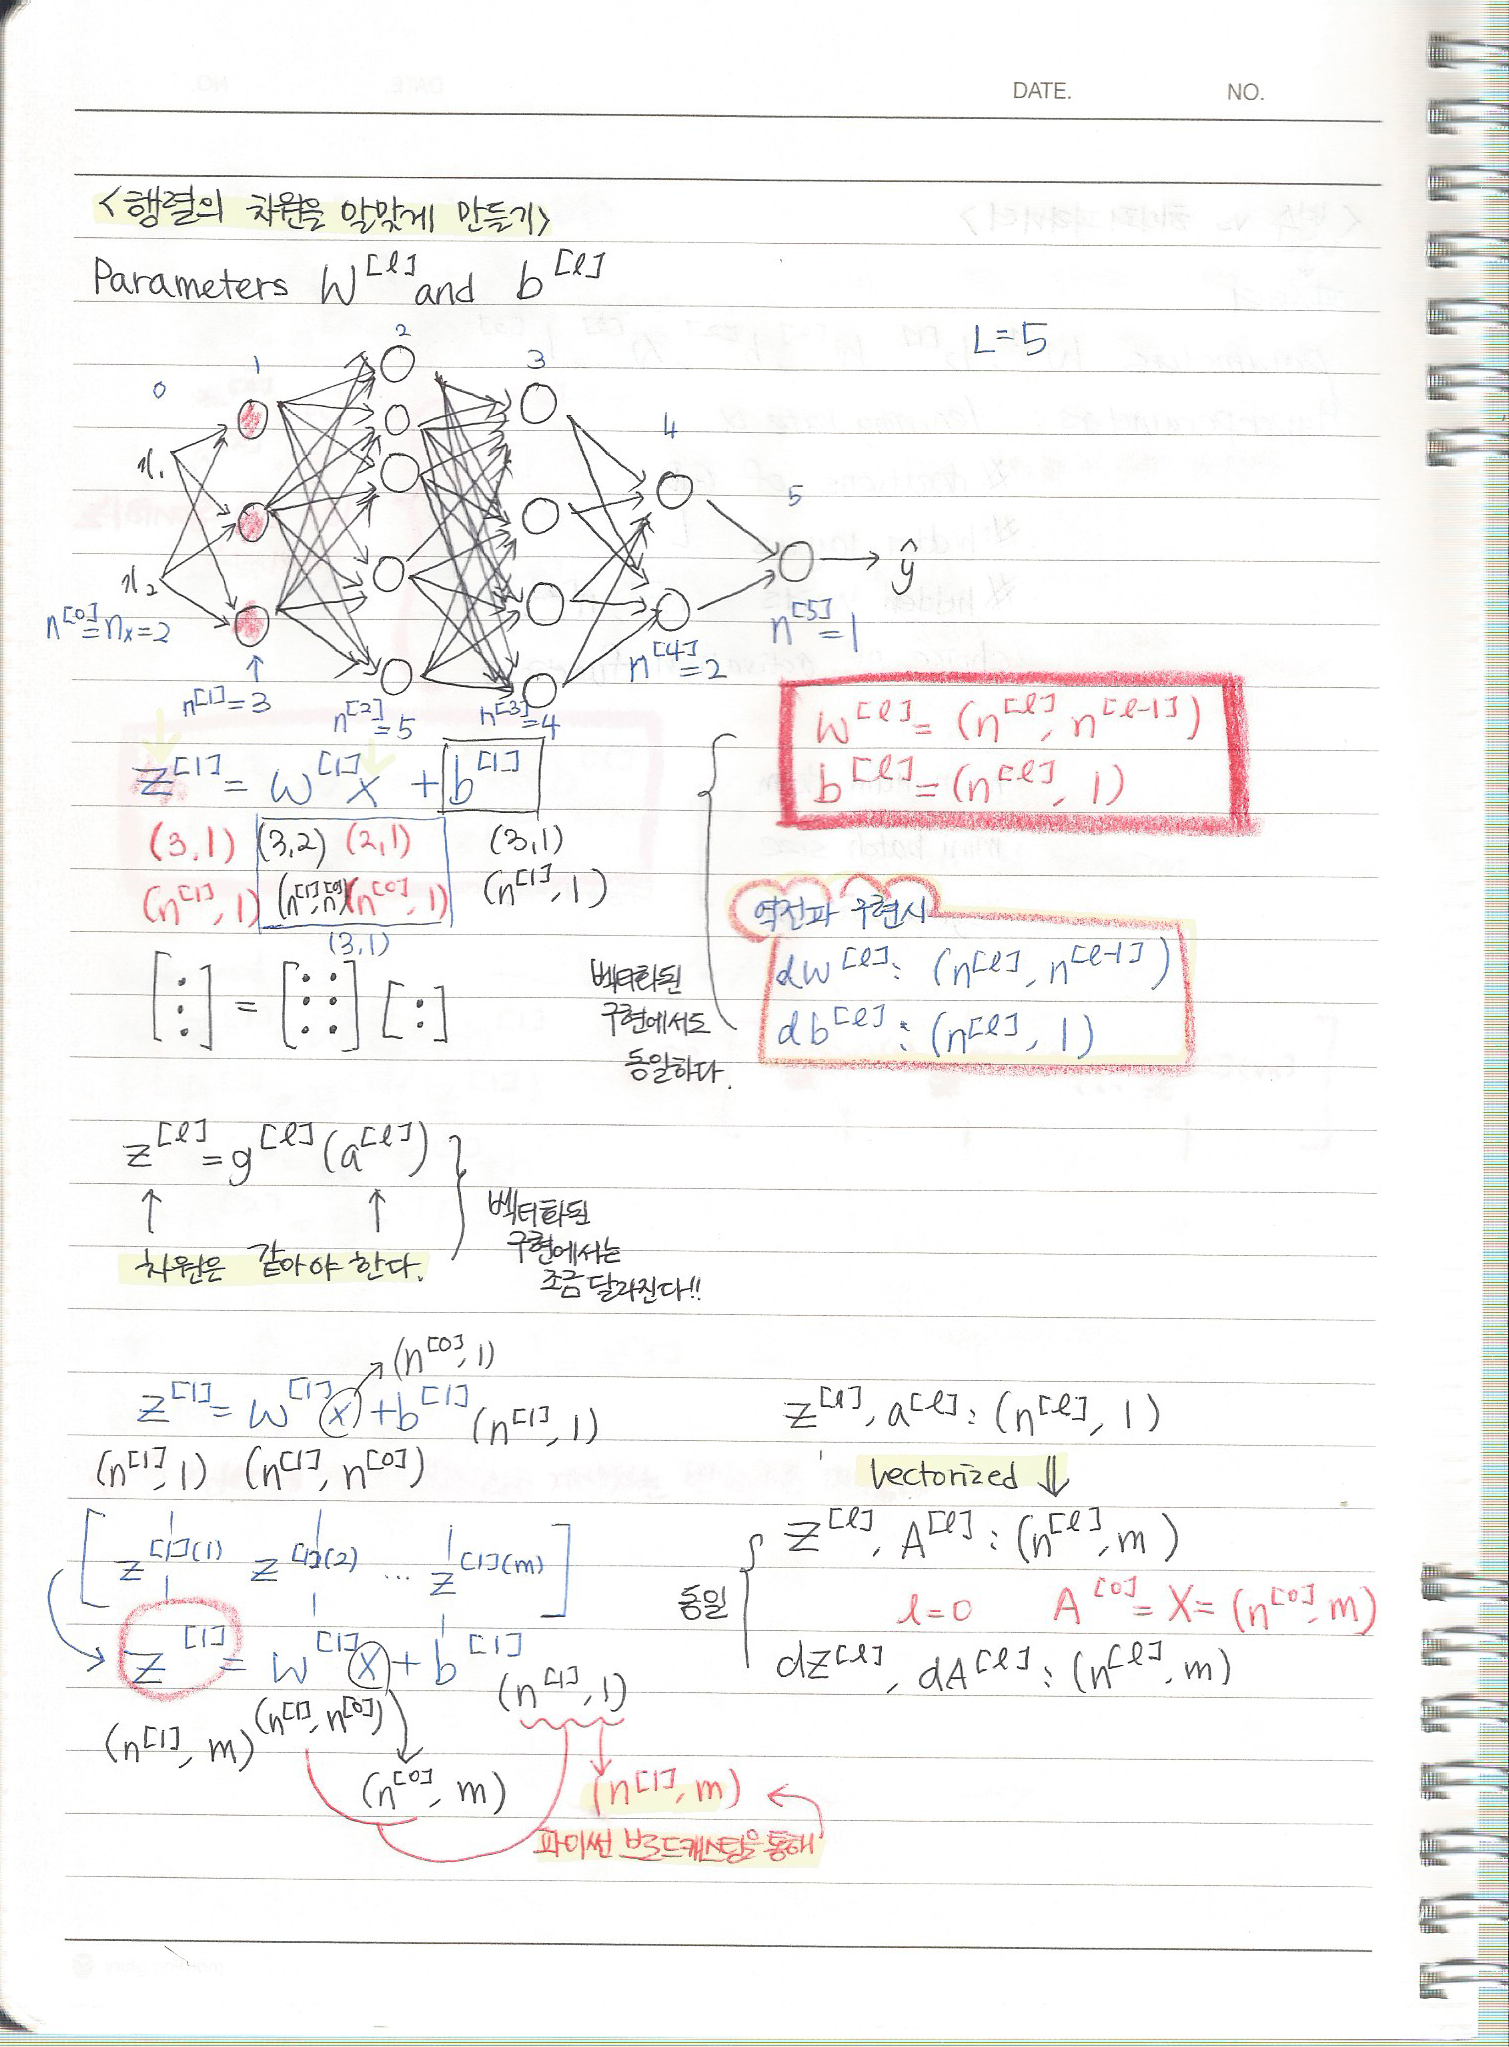 DATE. NO.
<행렬의 차원을 알맞게 만들기>
Parameters W^[l] and b^[l]
L=5
0 1 2 3 4 5
x₁
x₂
ŷ
n^[0]=nₓ=2
n^[1]=3
n^[2]=5
n^[3]=4
n^[4]=2
n^[5]=1
z^[1] = w^[1] x + b^[1]
(3,1) (3,2) (2,1) (3,1)
(n^[1], 1) (n^[1], n^[0]) (n^[0], 1) (n^[1], 1)
(3,1)
[:] = [: :] [:]
w^[l] = (n^[l], n^[l-1])
b^[l] = (n^[l], 1)
역전파 구현시
dw^[l] : (n^[l], n^[l-1])
db^[l] : (n^[l], 1)
벡터화된
구현에서도
동일하다.
z^[l] = g^[l] (a^[l])
차원은 같아야 한다.
벡터화된
구현에서는
조금 달라진다!!
(n^[0], 1)
z^[1] = w^[1] x + b^[1] (n^[1], 1)
(n^[1], 1) (n^[1], n^[0])
[z^[1](1) z^[1](2) ... z^[1](m)]
Z^[1] = w^[1] X + b^[1]
(n^[1], 1)
(n^[1], m) (n^[1], n^[0])
(n^[0], m) (n^[1], m)
파이썬 브로드캐스팅을 통해
z^[l], a^[l] : (n^[l], 1)
Vectorized ⇓
Z^[l], A^[l] : (n^[l], m)
동일
l=0 A^[0] = X = (n^[0], m)
dZ^[l], dA^[l] : (n^[l], m)